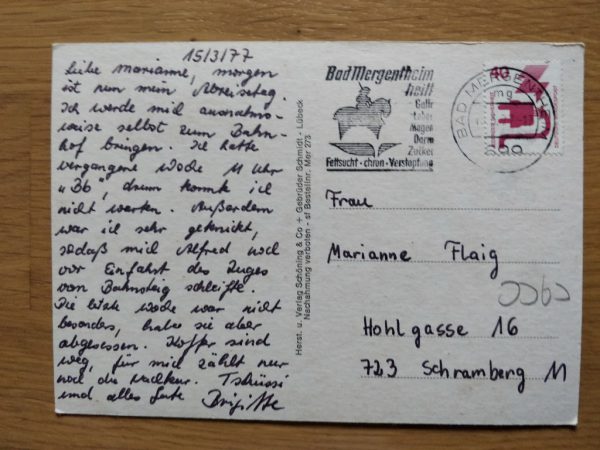 15/3/77
Liebe Marianne, morgen
ist nun mein Abreisetag.
Ich werde mich ausnahms-
weise selbst zum Bahn-
hof bringen. Ich hatte
vergangene Woche 11 Uhr
"36", drum konnte ich
nicht warten. Außerdem
war ich sehr geknickt,
sodaß mich Alfred noch
vor Einfahrt des Zuges
vom Bahnsteig schleifte.
Die letzte Woche war nicht
besonders, habe sie aber
abgesessen. Koffer sind
weg, für mich zählt nur
noch die Nachkur. Tschüssi
und alles Gute Brigitte
Herst. u. Verlag Schöning & Co + Gebrüder Schmidt - Lübeck
Nachahmung verboten - sf Bestellnr. Mer 273
Bad Mergentheim
heilt
Galle
Leber
Magen
Darm
Zucker
Fettsucht - chron. Verstopfung
BAD MERGENTHEIM
mg
40
Frau
Marianne Flaig
Hohlgasse 16
723 Schramberg 11